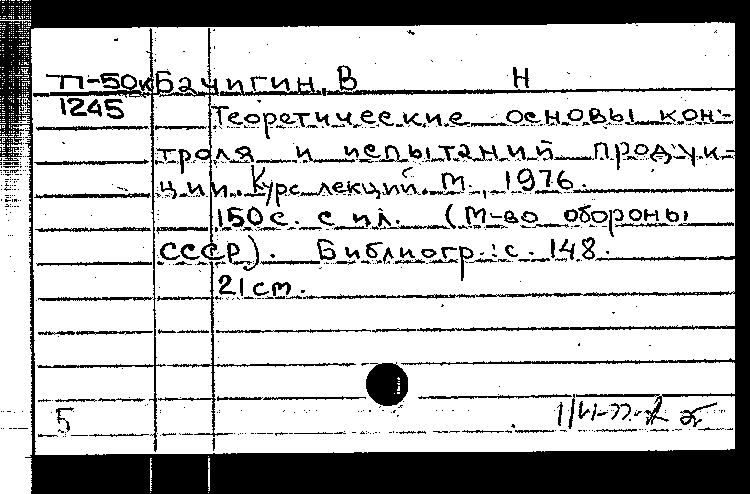 П-50к Бачигин, В Н
1245 Теоретические основы кон-
троля и испытаний продук-
ции. Курс лекций. М., 1976.
150с. с ил. (М-во обороны
СССР). Библиогр.: с. 148.
21 см.
Б